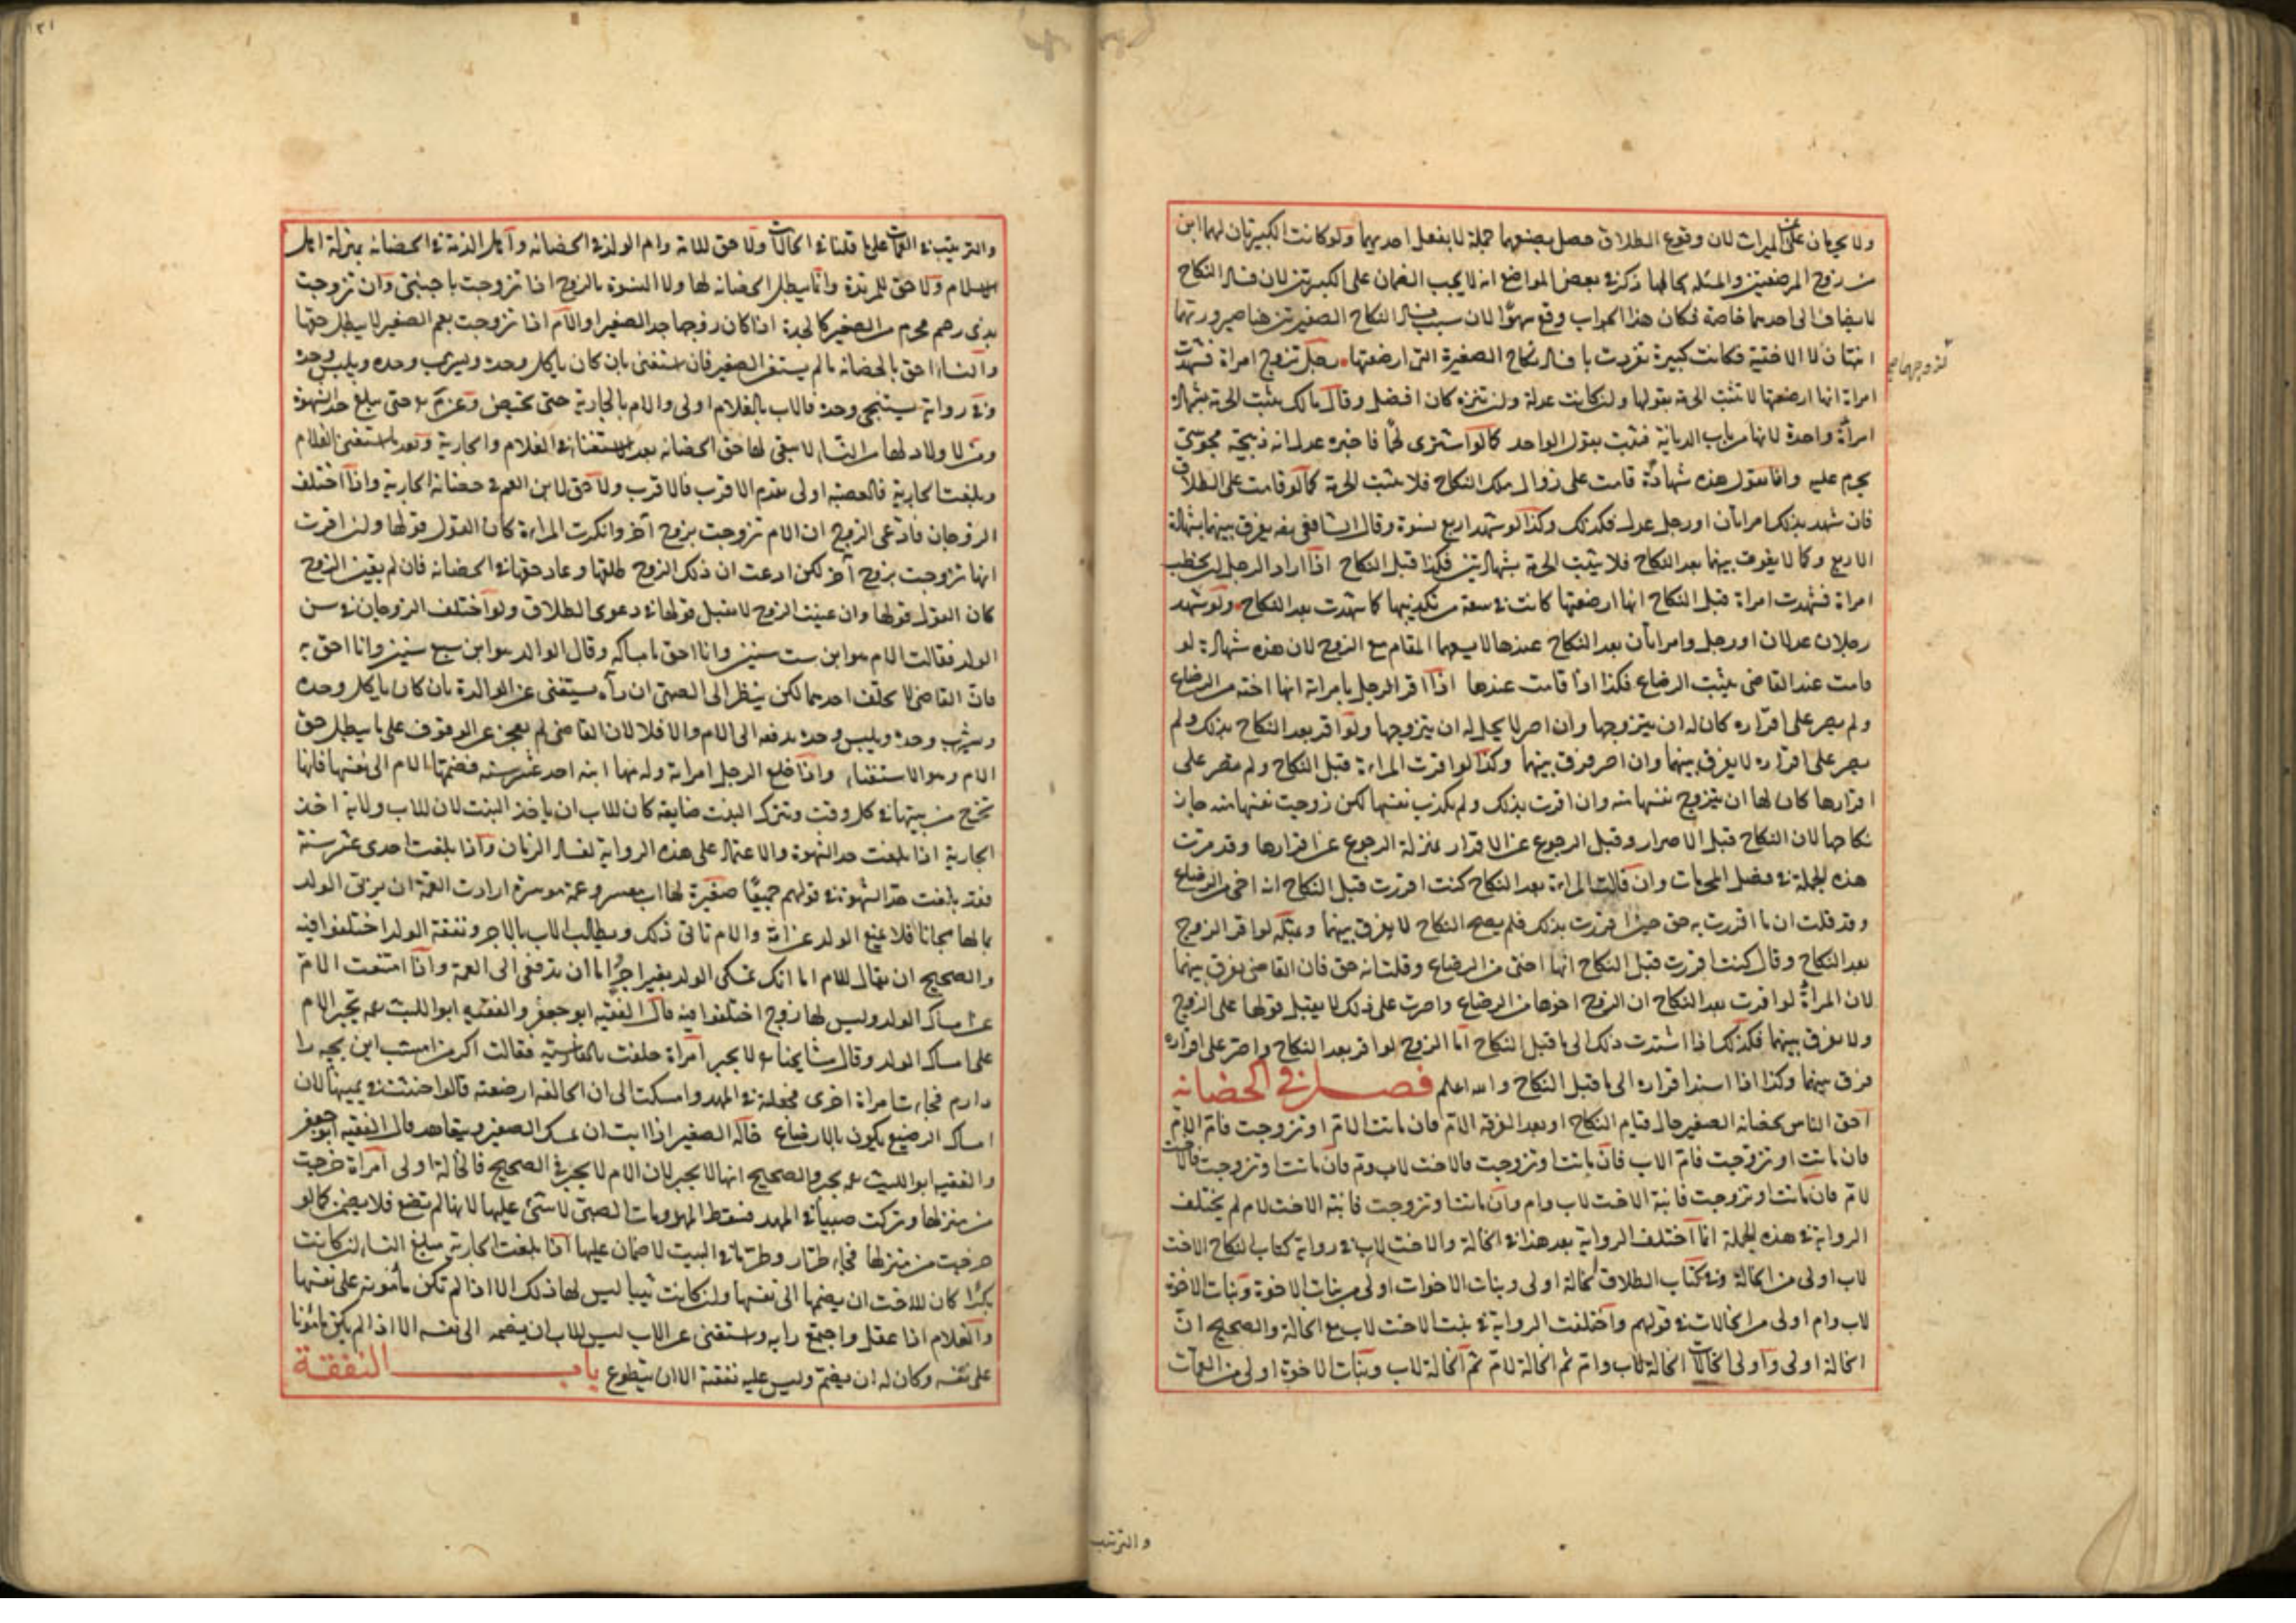 ولا يحرمان عن الميراث لان وقوع الطلاق حصل بصنعهما جملة لا بفعل احديهما ولو كانت الكبيرتان لهما ابن
من زوج المرضعتين والمسئلة بحالها ذكر في بعض المواضع انه لا يجب الضمان على الكبيرتين لان فساد النكاح
لا يضاف الى احديهما خاصة فكان هذا الجواب وقع سهوا لان سبب فساد النكاح الصغيرتين هنا صيرورتهما
لا الاختية فكانت كبيرة تفردت بافساد نكاح الصغيرة التي ارضعتها رجل تزوج امراة فشهدت
امراة انها ارضعتها لا تثبت الحرمة بقولها وان كانت عدلة وان تنزه كان افضل وقال مالك يثبت الحرمة بشهادة
امراة واحدة لانها من باب الديانة فتثبت بقول الواحد كما لو اشترى لحما فاخبره عدل انه ذبيحة مجوسي
يحرم عليه وانا نقول هذه شهادة قامت على زوال ملك النكاح فلا يثبت الحرمة كما لو قامت على الطلاق
فان شهد بذلك امراتان او رجل عدل فكذلك وكذا لو شهد اربع نسوة وقال الشافعي يفرق بينهما بشهادة
الاربع وكما لا يفرق بينهما بعد النكاح فلا يثبت الحرمة بشهادتين فكذا قبل النكاح اذا اراد الرجل ان يخطب
امراة فشهدت امراة قبل النكاح انها ارضعتها كانت في سعة من تكذيبها كما شهدت بعد النكاح ولو شهد
رجلان عدلان او رجل وامراتان بعد النكاح عندها لا يسعها المقام مع الزوج لان هذه شهادة لو
قامت عند القاضي يثبت الرضاع فكذا اذا قامت عندها اذا اقر الرجل بامراة انها اخته من الرضاع
ولم يصر على اقراره كان له ان يتزوجها وان اصر لا يحل له ان يتزوجها ولو اقر بعد النكاح بذلك ولم
يصر على اقراره لا يفرق بينهما وان اصر فرق بينهما وكذا لو اقرت المراة قبل النكاح ولم تصر على
اقرارها كان لها ان يتزوج نفسها منه وان اقرت بذلك ولم يكذب نفسها لكن زوجت نفسها منه جاز
نكاحها لان النكاح قبل الاصرار وقبل الرجوع عن الاقرار بمنزلة الرجوع عن اقرارها وقد مرت
هذه الجملة في فصل المحرمات وان قالت المراة بعد النكاح كنت اقررت قبل النكاح انه اخي من الرضاع
وقد قلت ان ما اقررت به حق حين اقررت بذلك فلم يصح النكاح لا يفرق بينهما وبمثله لو اقر الزوج
بعد النكاح وقال كنت اقررت قبل النكاح انها اختي من الرضاع وقلت انه حق فان القاضي يفرق بينهما
لان المراة لو اقرت بعد النكاح ان الزوج اخوها من الرضاع واصرت على ذلك لا يقبل قولها على الزوج
ولا يفرق بينهما فكذلك اذا اسندت ذلك الى ما قبل النكاح اما الزوج لو اقر بعد النكاح واصر على اقراره
فرق بينهما وكذا اذا اسند اقراره الى ما قبل النكاح والله اعلم فصل في الحضانة
احق الناس بحضانة الصغير حال قيام النكاح او بعد الفرقة الام فان ماتت الام او تزوجت فام الام
فان ماتت او تزوجت فام الاب فان ماتت او تزوجت فالاخت لاب وام فان ماتت او تزوجت فالاخت
لام فان ماتت او تزوجت فابنة الاخت لاب وام وان ماتت او تزوجت فابنة الاخت لام لم يختلف
الرواية في هذه الجملة انما اختلف الرواية بعد هذا في الخالة والاخت لاب في رواية كتاب النكاح الاخت
لاب اولى من الخالة وفي كتاب الطلاق الخالة اولى وبنات الاخوات اولى من بنات الاخوة وبنات الاخوة
لاب وام اولى من الخالات في قولهم واختلفت الرواية في بنت الاخت لاب مع الخالة والصحيح ان
الخالة اولى واولى الخالات الخالة لاب وام ثم الخالة لام ثم الخالة لاب وبنات الاخوة اولى من العمات
والترتيب
والترتيب في العمات على ما قلنا في الخالات ولا حق للامة وام الولد في الحضانة واهل الذمة في الحضانة بمنزلة اهل
الاسلام ولا حق للمرتدة وانما يبطل الحضانة لها ولا النسوة بالزوج اذا تزوجت باجنبي وان تزوجت
بذي رحم محرم من الصغير كالجدة اذا كان زوجها جد الصغير او الام اذا تزوجت بعم الصغير لا يبطل حقها
والنساء احق بالحضانة ما لم يستغن الصغير فان استغنى بان كان ياكل وحده ويشرب وحده ويلبس وحده
وفي رواية يستنجي وحده فالاب بالغلام اولى والام بالجارية حتى تحيض وعن محمد حتى يبلغ حد الشهوة
ومن لا ولاد لها من النساء لا يبقى لها حق الحضانة بعد الاستغناء في الغلام والجارية وبعد ما استغنى الغلام
وبلغت الجارية فالعصبة اولى يقدم الاقرب فالاقرب ولا حق لابن العم في حضانة الجارية واذا اختلف
الزوجان فادعى الزوج ان الام تزوجت بزوج آخر وانكرت المراة كان القول قولها وان اقرت
انها تزوجت بزوج آخر لكن ادعت ان ذلك الزوج طلقها وعاد حقها في الحضانة فان لم يعين الزوج
كان القول قولها وان عينت الزوج لا يقبل قولها في دعوى الطلاق ولو اختلف الزوجان في سن
الولد فقالت الام هو ابن ست سنين وانا احق بامساكه وقال الوالد هو ابن سبع سنين وانا احق به
فان القاضي لا يحلف احدهما لكن ينظر الى الصبي ان رآه يستغني عن الوالدة بان كان ياكل وحده
ويشرب وحده ويلبس وحده يدفعه الى الاب والا فلا لان القاضي لم يعجز عن الوقوف على ما يبطل حق
الام وهو الاستغناء واذا خلع الرجل امراته وله منها ابنة احد عشر سنة فضمتها الام الى نفسها فانها
تخرج من بيتها في كل وقت وتترك البنت ضايعة كان للاب ان ياخذ البنت لان للاب ولاية اخذ
الجارية اذا بلغت حد الشهوة والاعتماد على هذه الرواية لفساد الزمان واذا بلغت احدى عشر سنة
فقد بلغت حد الشهوة في قولهم جميعا صغيرة لها اب معسر وعمة موسرة ارادت العمة ان يربي الولد
بمالها مجانا فلا يمنع الولد عن امه والام تابى ذلك ويطالب الاب بالاجر ونفقة الولد اختلفوا فيه
والصحيح ان يقال للام اما انك تمسكي الولد بغير اجر واما ان تدفعي الى العمة واذا امتنعت الام
عن امساك الولد وليس لها زوج اختلفوا فيه قال الفقيه ابو جعفر والفقيه ابو الليث يجبر الام
على امساك الولد وقال مشايخنا لا يجبر امراة حلفت بالفارسية فقالت اكر من امشب اين بچه را
دارم فجاءت امراة اخرى فجعلته في المهد وامسكت الى ان الحالفة ارضعته قالوا حنثت في يمينها لان
امساك الرضيع يكون بالارضاع خالة الصغير اذا ابت ان تمسك الصغير ويتعاهد قال الفقيه ابو جعفر
والفقيه ابو الليث يجبر والصحيح انها لا يجبر لان الام لا يجبر في الصحيح فالخالة اولى امراة خرجت
من منزلها وتركت صبيا في المهد فسقط المهد ومات الصبي لا شئ عليها لانها لم تضع فلا يضمن كما لو
خرجت من منزلها فجاء طرار وطر ما في البيت لا ضمان عليها اذا بلغت الجارية مبلغ النساء ان كانت
بكرا كان للاخت ان يضمها الى نفسها وان كانت ثيبا ليس لها ذلك الا اذا لم تكن مامونة على نفسها
والغلام اذا عقل واجتمع رايه واستغنى عن الاب ليس للاب ان يضمه الى نفسه الا اذا لم يكن مامونا
على نفسه وكان له ان يضم وليس عليه نفقة الا ان يتطوع باب النفقة